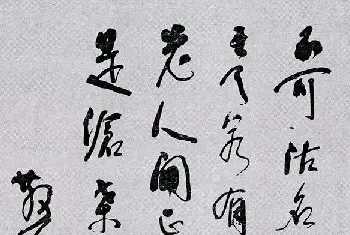 不可沽名
王天若有
老人间正
是滄桑